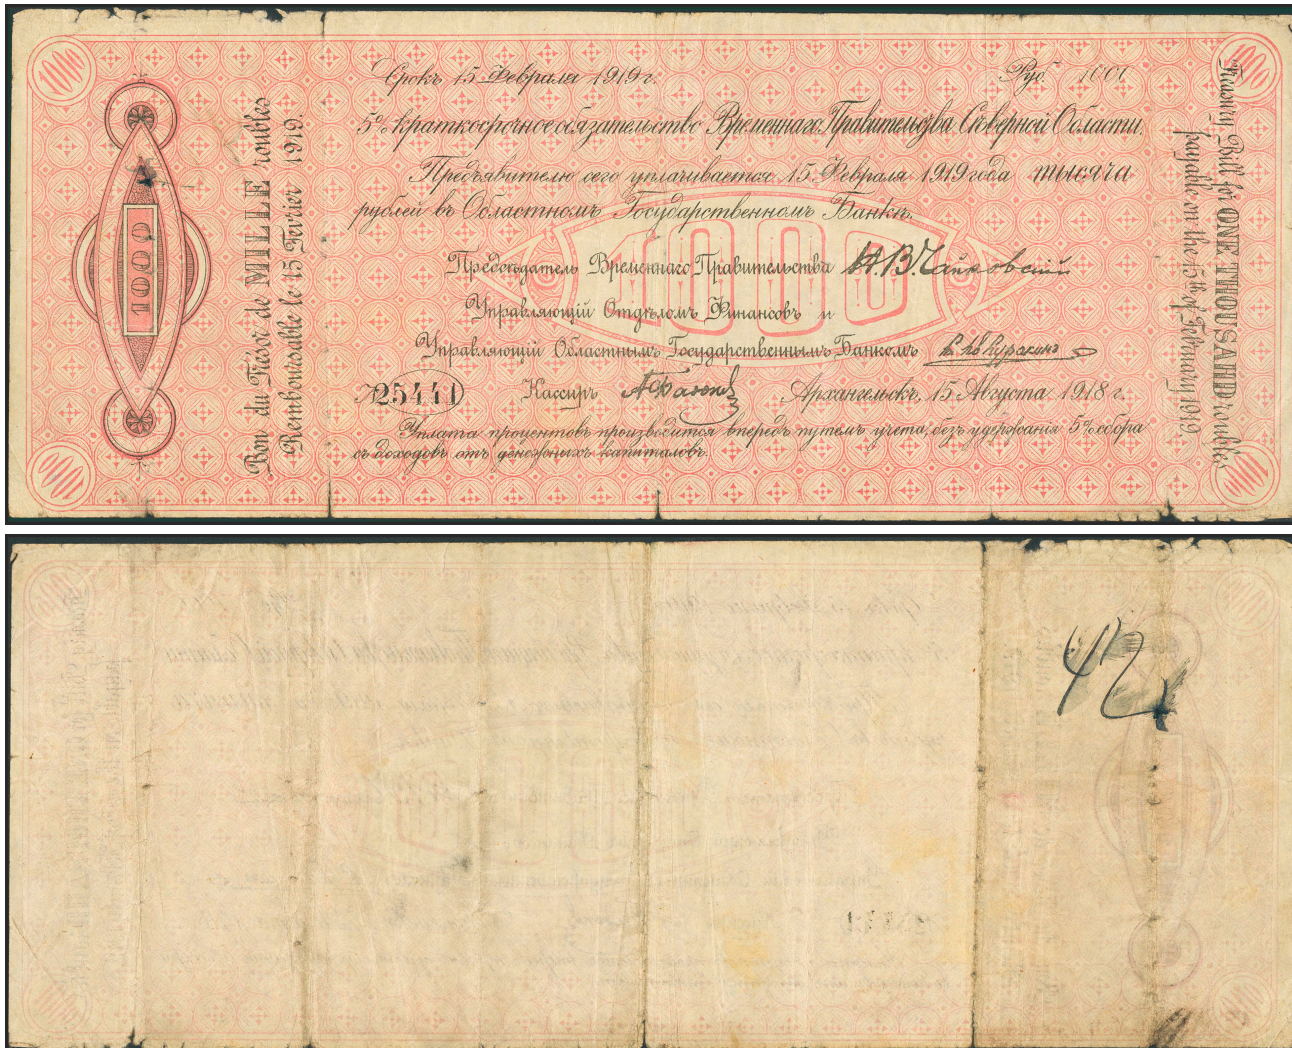 1000
Bon du Trésor de MILLE roubles
Remboursable le 15 Fevrier 1919.
Срокъ 15 Февраля 1919 г. Руб. 1000
5% краткосрочное обязательство Временнаго Правительства Сѣверной Области.
Предъявителю сего уплачивается 15 Февраля 1919 года тысяча
рублей въ Областномъ Государственномъ Банкѣ.
1000
Предсѣдатель Временнаго Правительства Н.В.Чайковскій
Управляющій Отдѣломъ Финансовъ и
Управляющій Областнымъ Государственнымъ Банкомъ
№ 25441 Кассиръ Архангельскъ, 15 Августа 1918 г.
Уплата процентовъ производится впередъ путемъ учета, безъ удержанія 5% сбора
съ доходовъ отъ денежныхъ капиталовъ.
Treasury Bill for ONE THOUSAND roubles
payable on the 15th of February 1919.
42